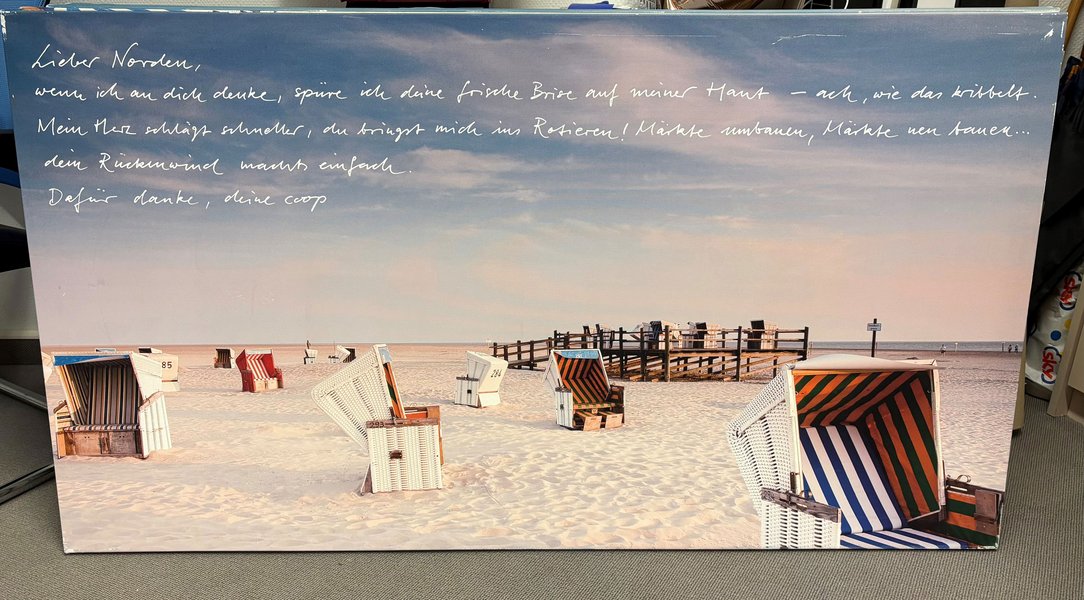 Lieber Norden,
wenn ich an dich denke, spüre ich deine frische Brise auf meiner Haut – ach, wie das kribbelt.
Mein Herz schlägt schneller, du bringst mich ins Rotieren! Märkte umbauen, Märkte neu bauen...
dein Rückenwind machts einfach.
Dafür danke, deine coop
285
284
203
sky
sky